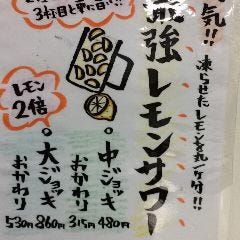 気!!
凍らせたレモンを丸ごと一ケ分!!
最強レモンサワー
3杯目と
レモン
2倍
・中ジョッキ 480円
おかわり 315円
・大ジョッキ 860円
おかわり 530円